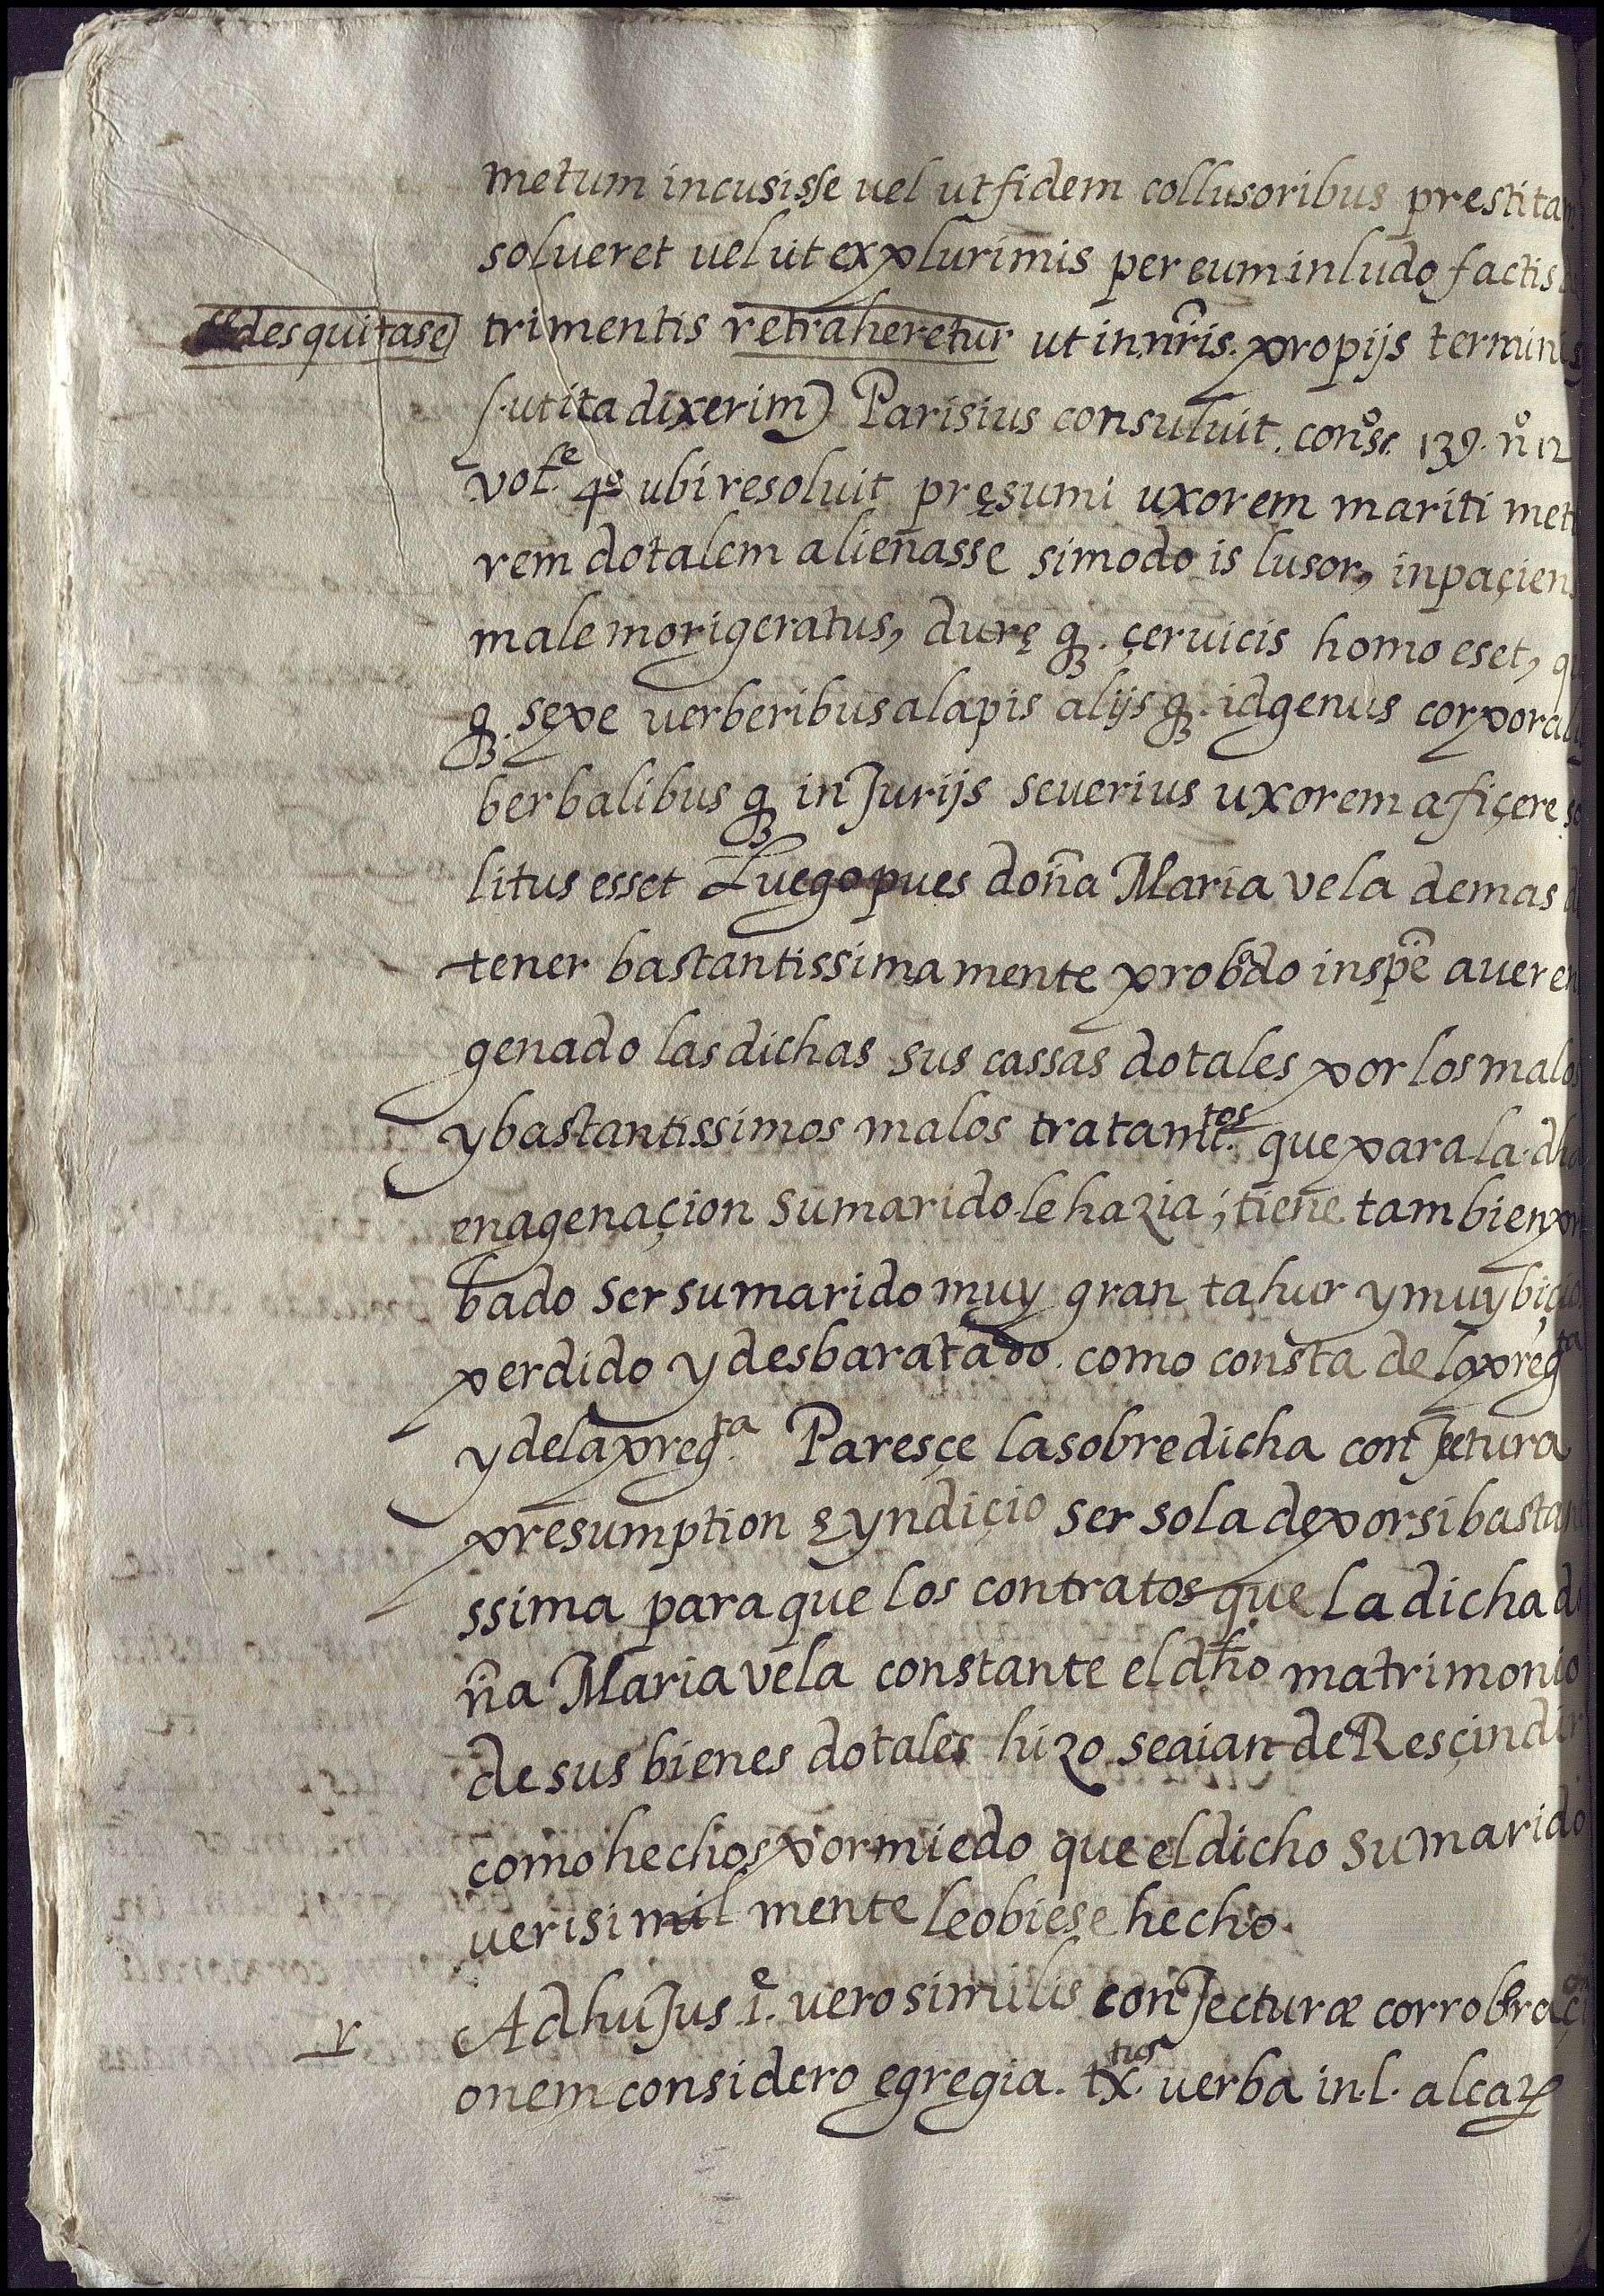 metum incusisse uel ut fidem collusoribus prestitam
solueret uel ut ex plurimis per eum in ludo factis
desquitase
trimentis retraheretur ut in nr̃is. propijs terminis
(ut ita dixerim) Parisius consuluit. consº. 139. nº 12
vol.e 4º ubi resoluit pręsumi uxorem mariti met
rem dotalem alienasse si modo is lusor, inpaçien
male morigeratus, durę q. çeruicis homo eset, q
q. sępe uerberibus alapis alijs q. id genus corporali
berbalibus q injurijs seuerius uxorem afiçere so
litus esset Luego pues doña Maria vela demas d
tener bastantissimamente probado in spe͂ auer en
genado las dichas sus cassas dotales por los malos
y bastantissimos malos tratamtos. que para la dha
enagenaçion su marido le hazia; tiene tambien pro
bado ser su marido muy gran tahur y muy biçio
perdido y desbaratado. como consta de la pregta
y de la pregta. Paresçe la sobredicha conjectura
presumption ę yndiçio ser sola de por si bastan
ssima para que los contratos que la dicha do
ña Maria vela constante el dho matrimonio
de sus bienes dotales hizo se aian de Resçindir
como hechos por miedo que el dicho su marido
uerisimilmente le obiese hecho.
r
Ad hujus 1.e verosimilis conjecturæ corroboraçi
onem considero egregia. tx.tus uerba in. l. alcaz